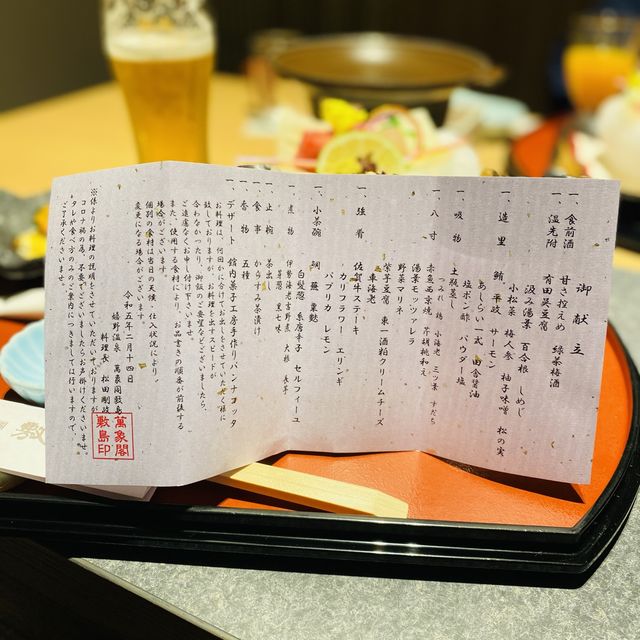 御献立
一 食前酒 甘さ控えめ 緑茶梅酒
一 温先附 有田呉豆腐
汲み湯葉 百合根 しめじ
小松菜 梅人参 柚子味噌 松の実
一、造里 鮪 平政 サーモン
あしらい一式 山合醤油
塩ポン酢 パウダー塩
一、吸物 土瓶蒸し
つみれ 鶏 小海老 三ツ葉 すだち
一、八寸 赤魚西京焼 芹胡桃和え
湯葉モッツァレラ
野菜マリネ
茶豆腐 東一酒粕クリームチーズ
車海老
一、強肴 佐賀牛ステーキ
カリフラワー エリンギ
パプリカ レモン
一、小茶碗
白髪葱 糸唐辛子 セルフィーユ
一、煮物 伊勢海老吉野煮 大根 長芋
芽葱 黒七味
一、止椀 茶出汁
一、食事 からすみ茶漬け
一、香物 五種
一、デザート 館内菓子工房手作りパンナコッタ
お料理は、何回かに分けてお出しをさせていただく様に
致しておりますが、お料理を出すスピードが
合わなかったり、御飯のご要望などございましたら、
ご遠慮なくお申し付け下さいませ。
また、使用する食材により、お品書きの順番が前後する
場合がございます。
個別の食材は当日の天候・仕入状況により、
変更になる場合がございます。
令和五年二月十四日
嬉野温泉 萬象閣敷島
料理長 松田剛
※係よりお料理の説明をさせていただいておりますが、
コロナ禍の為、不要でございましたらお声掛けくださいませ。
タレや食べ方のみのご案内につきましては行いますので、
ご了承くださいませ。
萬象閣
敷島印
敷